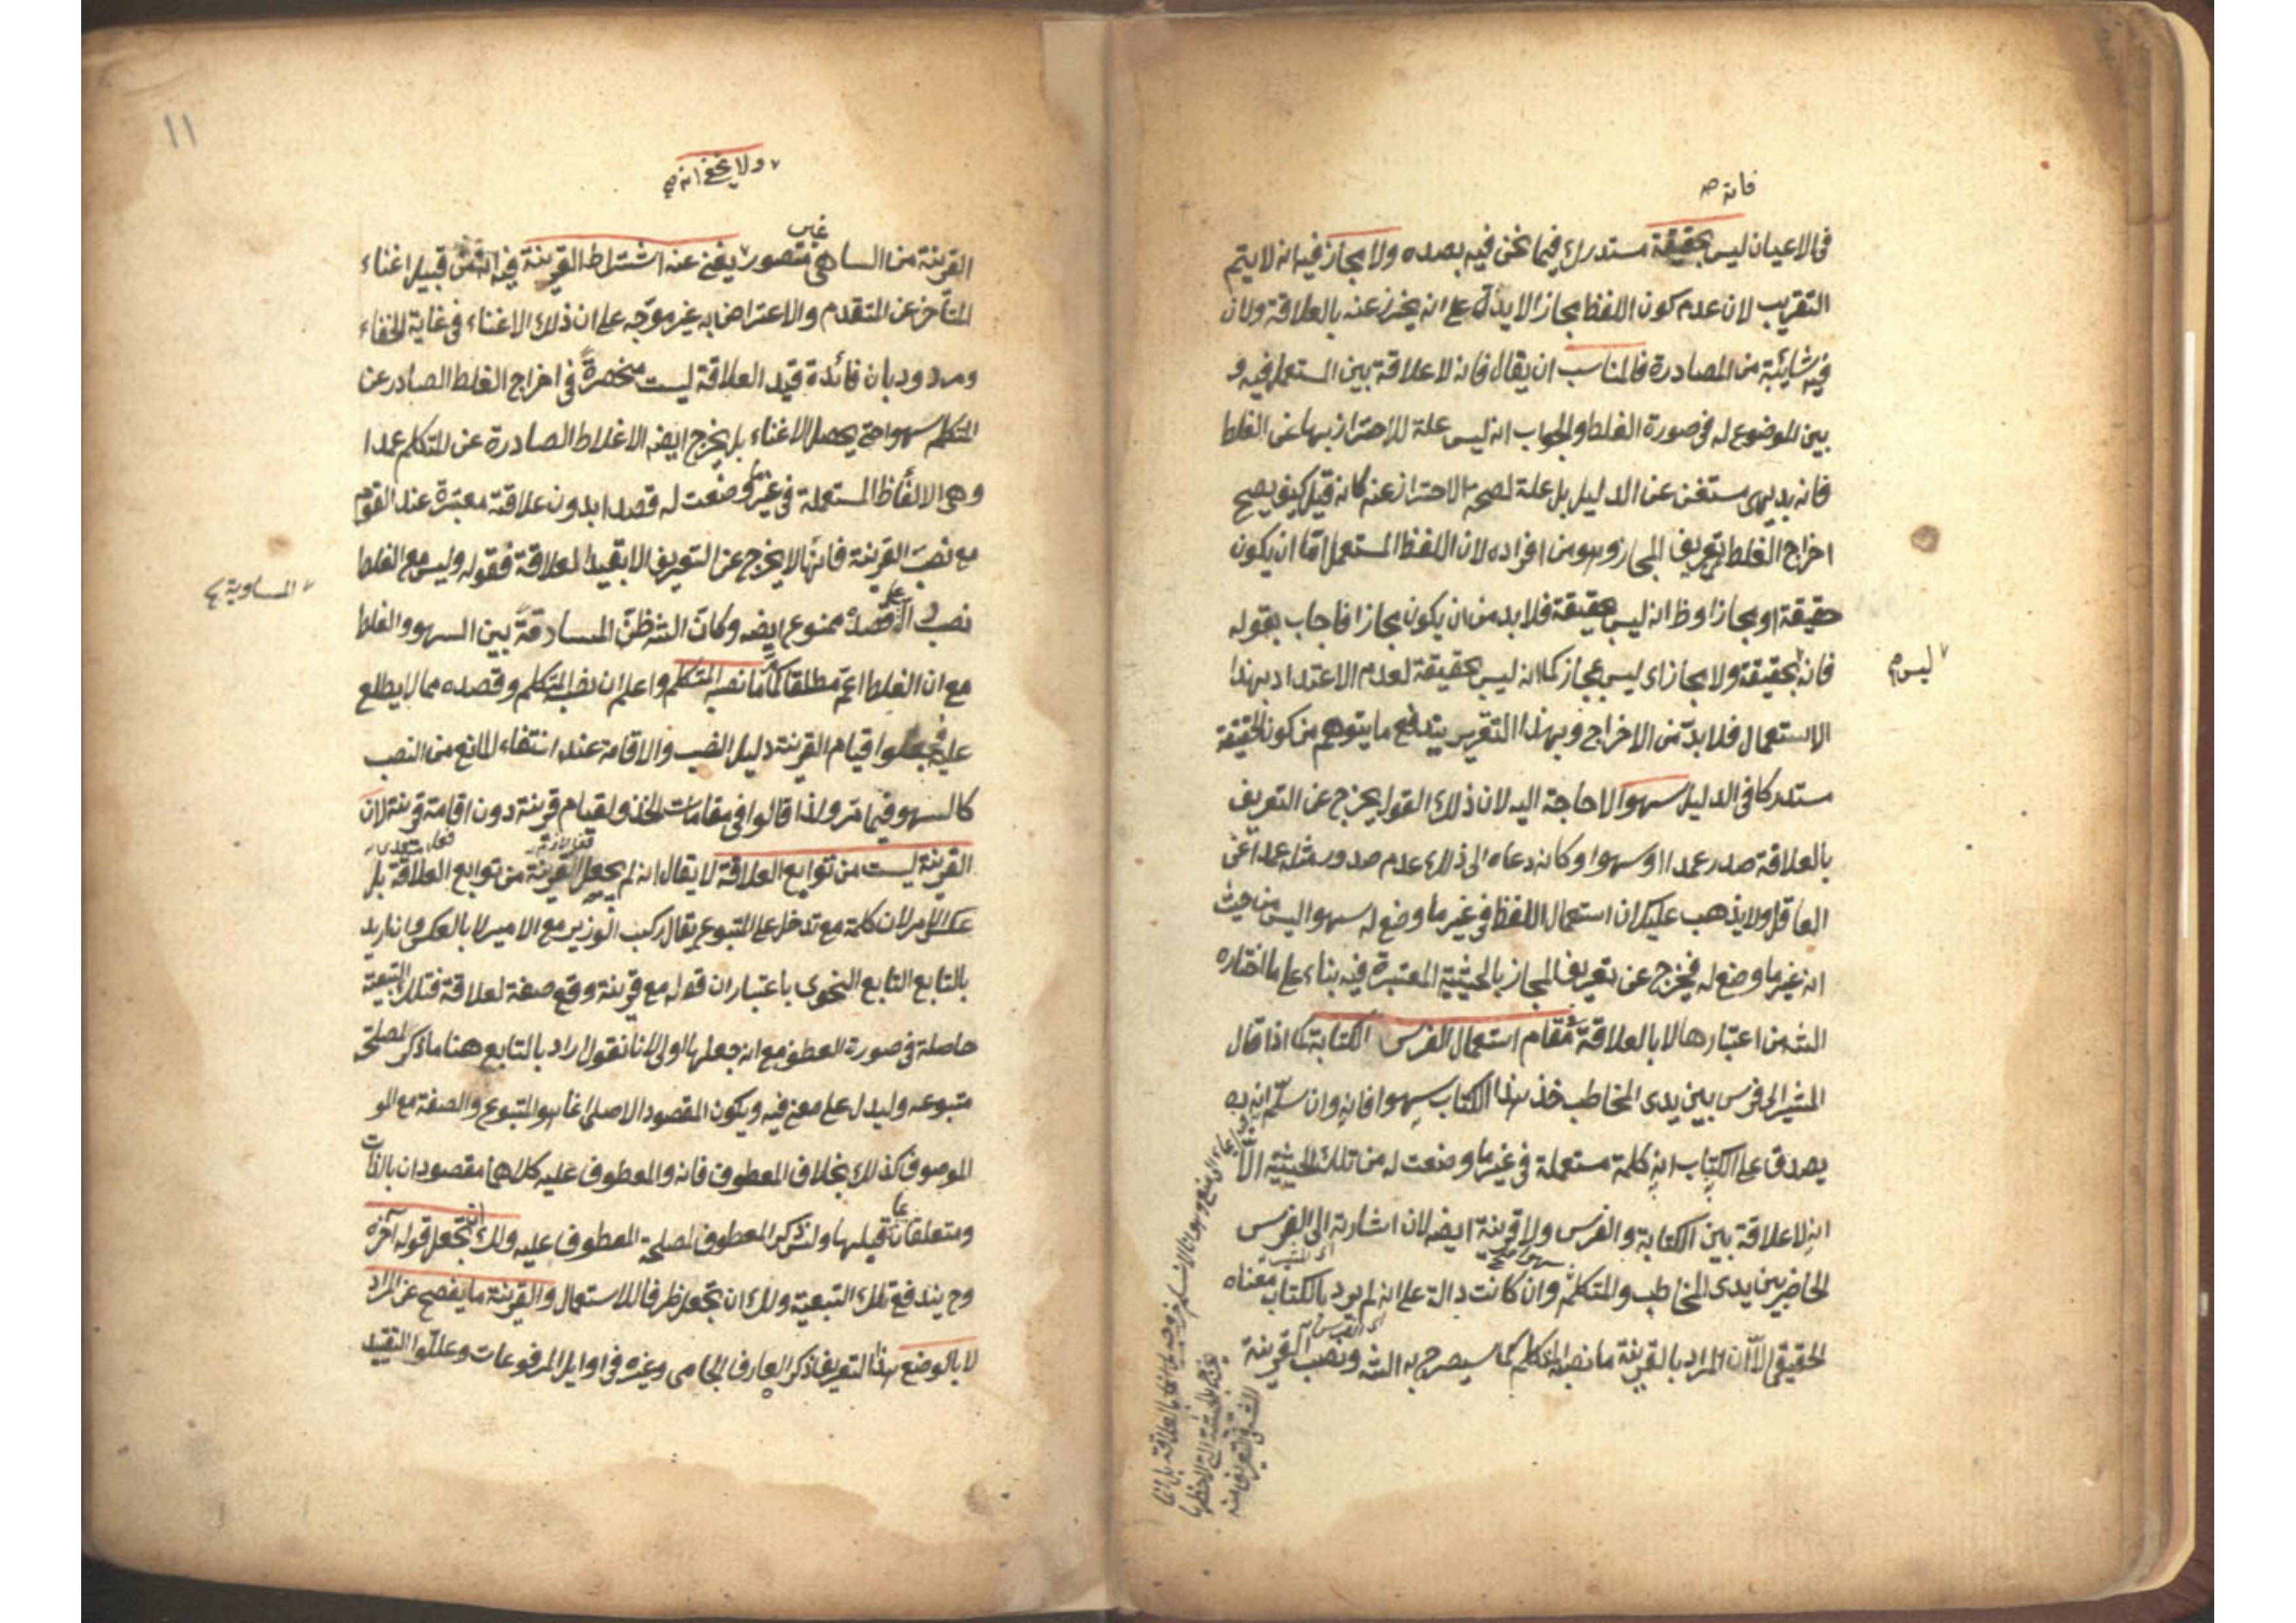 فانه صح
فى الاعيان ليس بحقيقة مستدرك فيما نحن فيه بصدده ولا مجاز فيه انه لا يتم
التقريب لان عدم كون اللفظ مجازا لا يدل على انه يحترز عنه بالعلاقة ولان
فيه شائبة من المصادرة فالمناسب ان يقال فانه لا علاقة بين المستعمل فيه و
بين الموضوع له فى صورة الغلط والجواب انه ليس علة للاحتراز بها عن الغلط
فانه بديهى مستغن عن الدليل بل علة لصحة الاحتراز عنه كانه قيل كيف يصح
اخراج الغلط بتعريف المجاز وهو من افراده لان اللفظ المستعمل اما ان يكون
حقيقة او مجازا وظ انه ليس بحقيقة فلا بد من ان يكون مجازا فاجاب بقوله
فانه بحقيقة ولا مجاز اى ليس بمجاز كما انه ليس بحقيقة لعدم الاعتداد بهذا
ليس صح
الاستعمال فلا بد من الاخراج وبهذا التقرير يندفع ما يتوهم من كون الحقيقة
مستدركا فى الدليل سهوا لا حاجة اليه لان ذلك القول يخرج عن التعريف
بالعلاقة صدر عمدا او سهوا وكانه دعاه الى ذلك عدم صدور مثله عمدا عن
العاقل ولا يذهب عليك ان استعمال اللفظ فى غير ما وضع له سهوا ليس من حيث
انه غير ما وضع له فيخرج عن تعريف المجاز بالحيثية المعتبرة فيه بناء على ما اختاره
الشه من اعتبارها لا بالعلاقة مقام استعمال الفرس الكتابة كما اذا قال
المشير الى فرس بين يدى المخاطب خذ هذا الكتاب سهوا فانه وان سلم انه
يصدق على الكتاب انه كلمة مستعملة فى غير ما وضعت له من تلك الحيثية الا
انه لا علاقة بين الكتابة والفرس ولا قرينة ايضا لان اشارته الى الفرس
الحاضر بين يدى المخاطب والمتكلم وان كانت دالة على انه لم يرد بالكتاب معناه
الحقيقى الا ان المراد بالقرينة ما نصبه المتكلم كما سيصرح به الشه ونصب القرينة
١١
ولا يخفى انه صح
القرينة من الساهى غير متصور يغنى عنه اشتراط القرينة فيه انه من قبيل اغناء
المتأخر عن المتقدم والاعتراض به غير موجه على ان ذلك الاغناء فى غاية الخفاء
ومردود بان فائدة قيد العلاقة ليست منحصرة فى اخراج الغلط الصادر عن
المتكلم سهوا حتى يحصل الاغناء بل يخرج ايضا الاغلاط الصادرة عن المتكلم عمدا
وهى الالفاظ المستعملة فى غير ما وضعت له قصدا بدون علاقة معتبرة عند القوم
مع نصب القرينة فانها لا يخرج عن التعريف الا بقيد العلاقة فقوله وليس مع الغلط
المساوية
نصب ممنوع ايضا وكان الشه ظن المسادقة بين السهو والغلط
مع ان الغلط اعم مطلقا ما نصبه المتكلم واعلم ان نصب المتكلم وقصده مما لا يطلع
عليه فجعلوا قيام القرينة دليل النصب والاقامة عند انتفاء المانع من النصب
كالسهو فيما مر ولذا قالوا فى مقامات الحذف لقيام قرينة دون اقامة قرينة لان
القرينة ليست من توابع العلاقة لا يقال انه لم يجعل القرينة من توابع العلاقة بل
عكس الامر لان كلمة مع تدخل على المتبوع يقال ركب الوزير مع الامير لا بالعكس وان اريد
بالتابع التابع النحوى باعتبار ان قوله مع قرينة وقع صفة لعلاقة فتلك التبعية
حاصلة فى صورة العطف مع انه جعلها اولى لانا نقول اراد بالتابع هنا ما ذكر لمصلحة
متبوعه وليدل على معنى فيه ويكون المقصود الاصلى انما هو المتبوع والصفة مع المو
الموصوف كذلك بخلاف المعطوف فانه والمعطوف عليه كلاهما مقصودان بالذات
قبلها ولم يذكر المعطوف لمصلحة المعطوف عليه ولك ان تجعل قوله آخره
وح يندفع تلك التبعية ولك ان تجعل ظرفا للاستعمال والقرينة ما يفصح عن المراد
لا بالوضع هذا التعريف ذكر العارف الجامى وغيره فى اوايل المرفوعات وعللوا التقييد